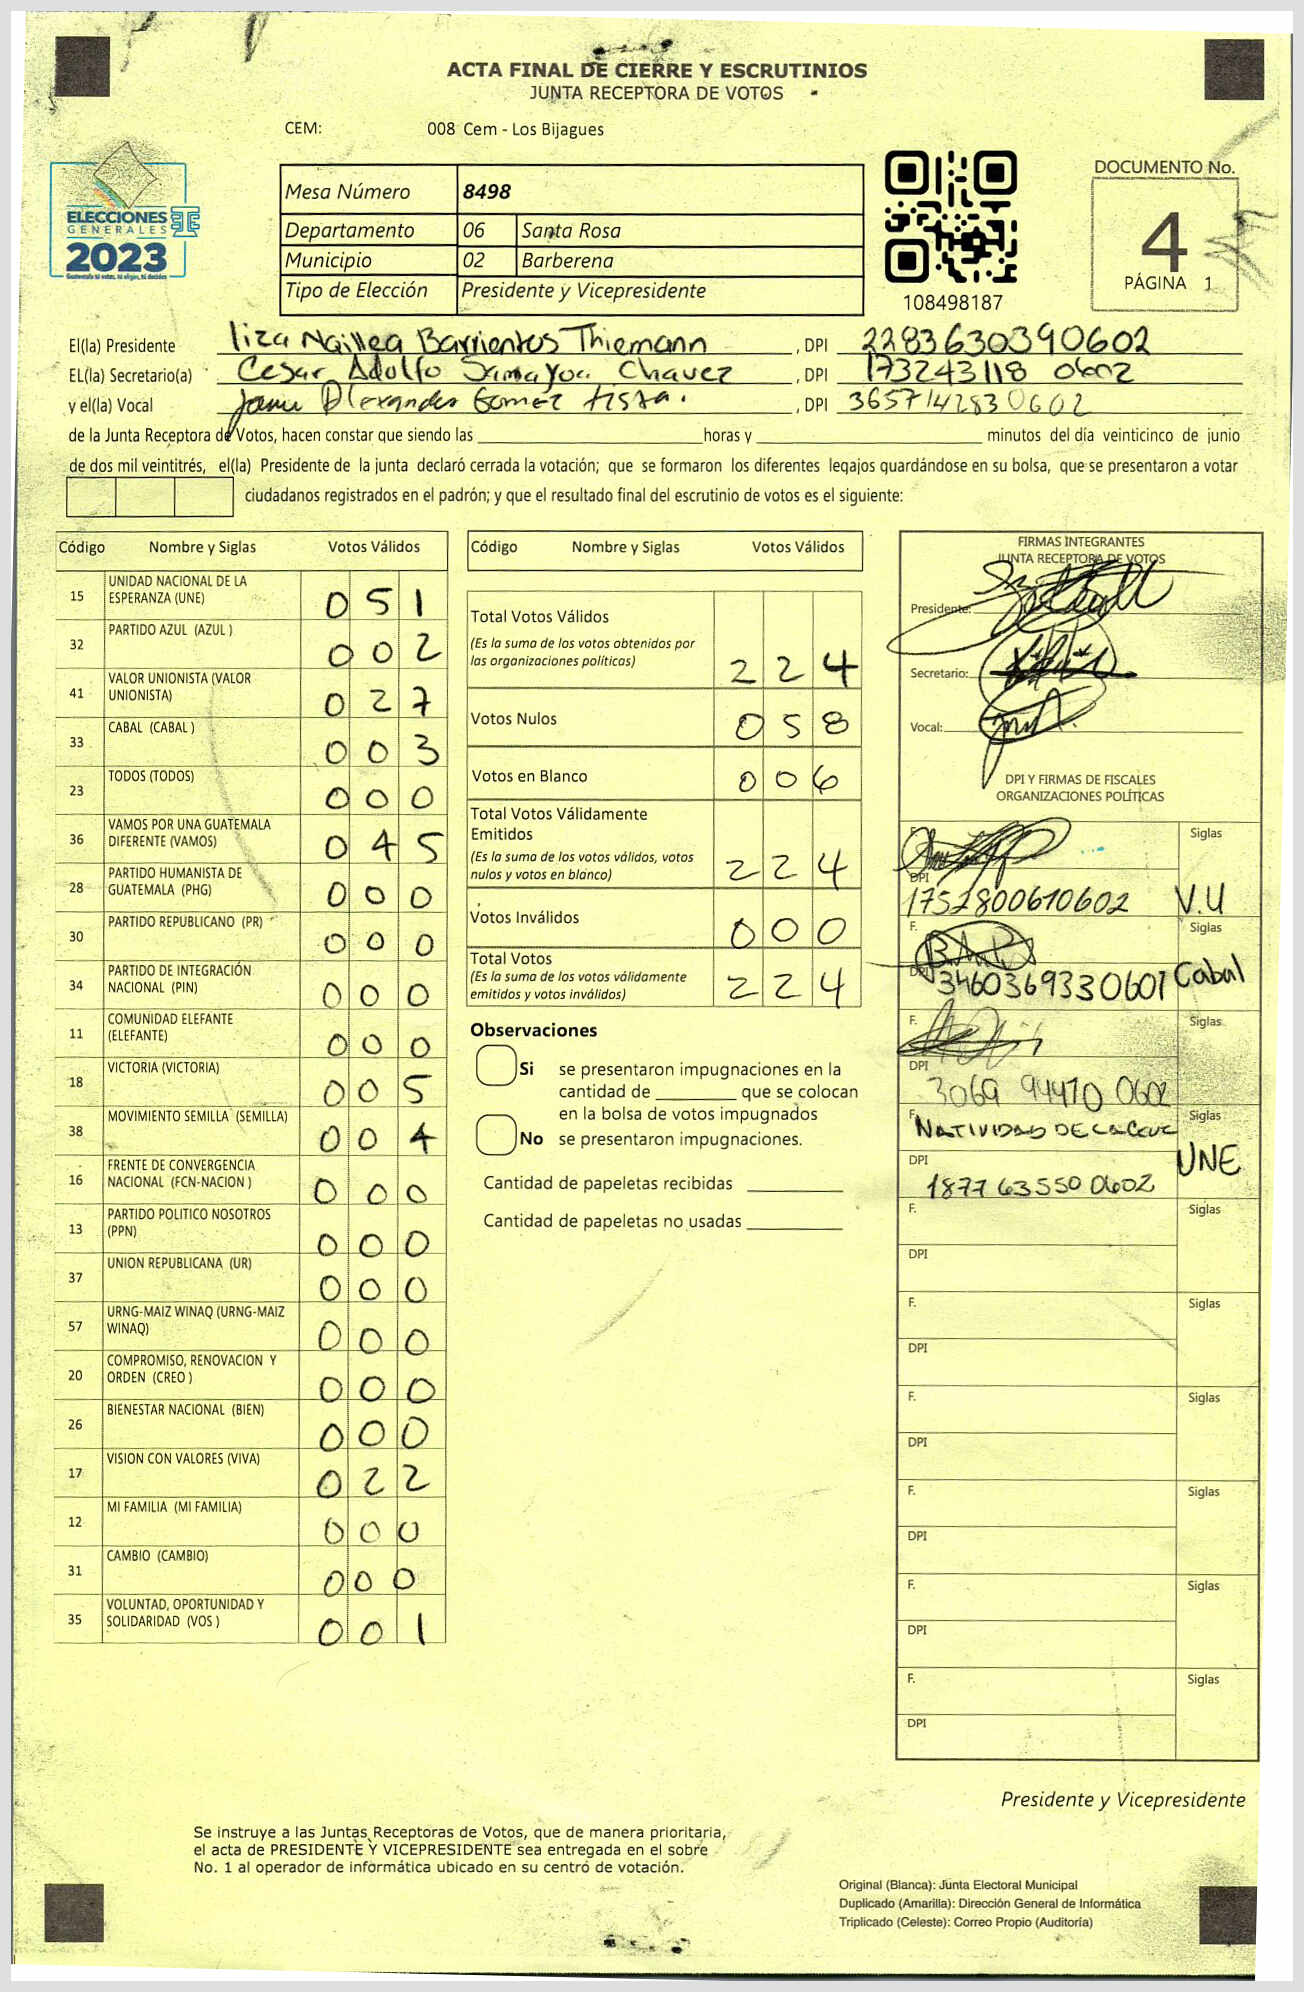 ACTA FINAL DE CIERRE Y ESCRUTINIOS
JUNTA RECEPTORA DE VOTOS
CEM: 008 Cem - Los Bijagues
ELECCIONES
GENERALES
2023
Mesa Número 8498
Departamento 06 Santa Rosa
Municipio 02 Barberena
Tipo de Elección Presidente y Vicepresidente
108498187
DOCUMENTO No.
4
PÁGINA 1
El(la) Presidente Iiza Naillea Barrientos Thiemann , DPI 2283630390602
EL(la) Secretario(a) Cesar Adolfo Samayoa Chavez , DPI 173243118 0602
y el(la) Vocal Alexander Gomez , DPI 3657142830602
de la Junta Receptora de Votos, hacen constar que siendo las horas y minutos del día veinticinco de junio
de dos mil veintitrés, el(la) Presidente de la junta declaró cerrada la votación; que se formaron los diferentes legajos guardándose en su bolsa, que se presentaron a votar
ciudadanos registrados en el padrón; y que el resultado final del escrutinio de votos es el siguiente:
Código Nombre y Siglas Votos Válidos
15 UNIDAD NACIONAL DE LA ESPERANZA (UNE) 051
32 PARTIDO AZUL (AZUL ) 002
41 VALOR UNIONISTA (VALOR UNIONISTA) 027
33 CABAL (CABAL ) 003
23 TODOS (TODOS) 000
36 VAMOS POR UNA GUATEMALA DIFERENTE (VAMOS) 045
28 PARTIDO HUMANISTA DE GUATEMALA (PHG) 000
30 PARTIDO REPUBLICANO (PR) 000
34 PARTIDO DE INTEGRACIÓN NACIONAL (PIN) 000
11 COMUNIDAD ELEFANTE (ELEFANTE) 000
18 VICTORIA (VICTORIA) 005
38 MOVIMIENTO SEMILLA (SEMILLA) 004
16 FRENTE DE CONVERGENCIA NACIONAL (FCN-NACION ) 000
13 PARTIDO POLITICO NOSOTROS (PPN) 000
37 UNION REPUBLICANA (UR) 000
57 URNG-MAIZ WINAQ (URNG-MAIZ WINAQ) 000
20 COMPROMISO, RENOVACION Y ORDEN (CREO ) 000
26 BIENESTAR NACIONAL (BIEN) 000
17 VISION CON VALORES (VIVA) 022
12 MI FAMILIA (MI FAMILIA) 000
31 CAMBIO (CAMBIO) 000
35 VOLUNTAD, OPORTUNIDAD Y SOLIDARIDAD (VOS ) 001
Código Nombre y Siglas Votos Válidos
Total Votos Válidos
(Es la suma de los votos obtenidos por
las organizaciones políticas) 224
Votos Nulos 058
Votos en Blanco 006
Total Votos Válidamente
Emitidos
(Es la suma de los votos válidos, votos
nulos y votos en blanco) 224
Votos Inválidos 000
Total Votos
(Es la suma de los votos válidamente
emitidos y votos inválidos) 224
Observaciones
Si se presentaron impugnaciones en la
cantidad de que se colocan
en la bolsa de votos impugnados
No se presentaron impugnaciones.
Cantidad de papeletas recibidas
Cantidad de papeletas no usadas
FIRMAS INTEGRANTES
JUNTA RECEPTORA DE VOTOS
Presidente:
Secretario:
Vocal:
DPI Y FIRMAS DE FISCALES
ORGANIZACIONES POLÍTICAS
F. Siglas
DPI 1751800610602 V.U
F. Siglas
DPI 3460369330601 Cabal
F. Siglas
DPI 3069 94470 0602
F. NATIVIDAD DE LA Siglas
DPI 1877 63550 0602 UNE
F. Siglas
DPI
F. Siglas
DPI
F. Siglas
DPI
F. Siglas
DPI
F. Siglas
DPI
F. Siglas
DPI
Presidente y Vicepresidente
Se instruye a las Juntas Receptoras de Votos, que de manera prioritaria,
el acta de PRESIDENTE Y VICEPRESIDENTE sea entregada en el sobre
No. 1 al operador de informática ubicado en su centro de votación.
Original (Blanca): Junta Electoral Municipal
Duplicado (Amarilla): Dirección General de Informática
Triplicado (Celeste): Correo Propio (Auditoría)